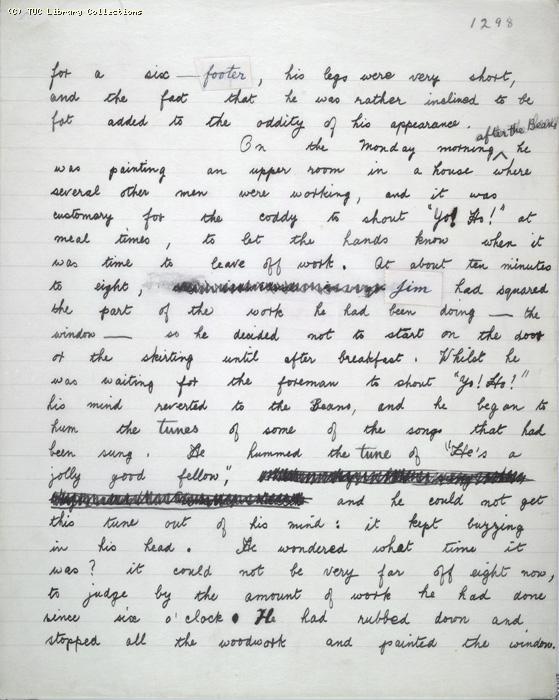 (C) TUC Library Collections
1298
for a six-footer, his legs were very short,
and the fact that he was rather inclined to be
fat added to the oddity of his appearance.
after the Beano
On the Monday morning he
was painting an upper room in a house where
several other men were working, and it was
customary for the coddy to shout "Yo! Ho!" at
meal times, to let the hands know when it
was time to leave off work. At about ten minutes
to eight, Jim had squared
the part of the work he had been doing — the
window — so he decided not to start on the door
or the skirting until after breakfast. Whilst he
was waiting for the foreman to shout "Yo! Ho!"
his mind reverted to the Beano, and he began to
hum the tunes of some of the songs that had
been sung. He hummed the tune of "He's a
jolly good fellow",
and he could not get
this tune out of his mind: it kept buzzing
in his head. He wondered what time it
was? it could not be very far off eight now,
to judge by the amount of work he had done
since six o'clock. He had rubbed down and
stopped all the woodwork and painted the window.